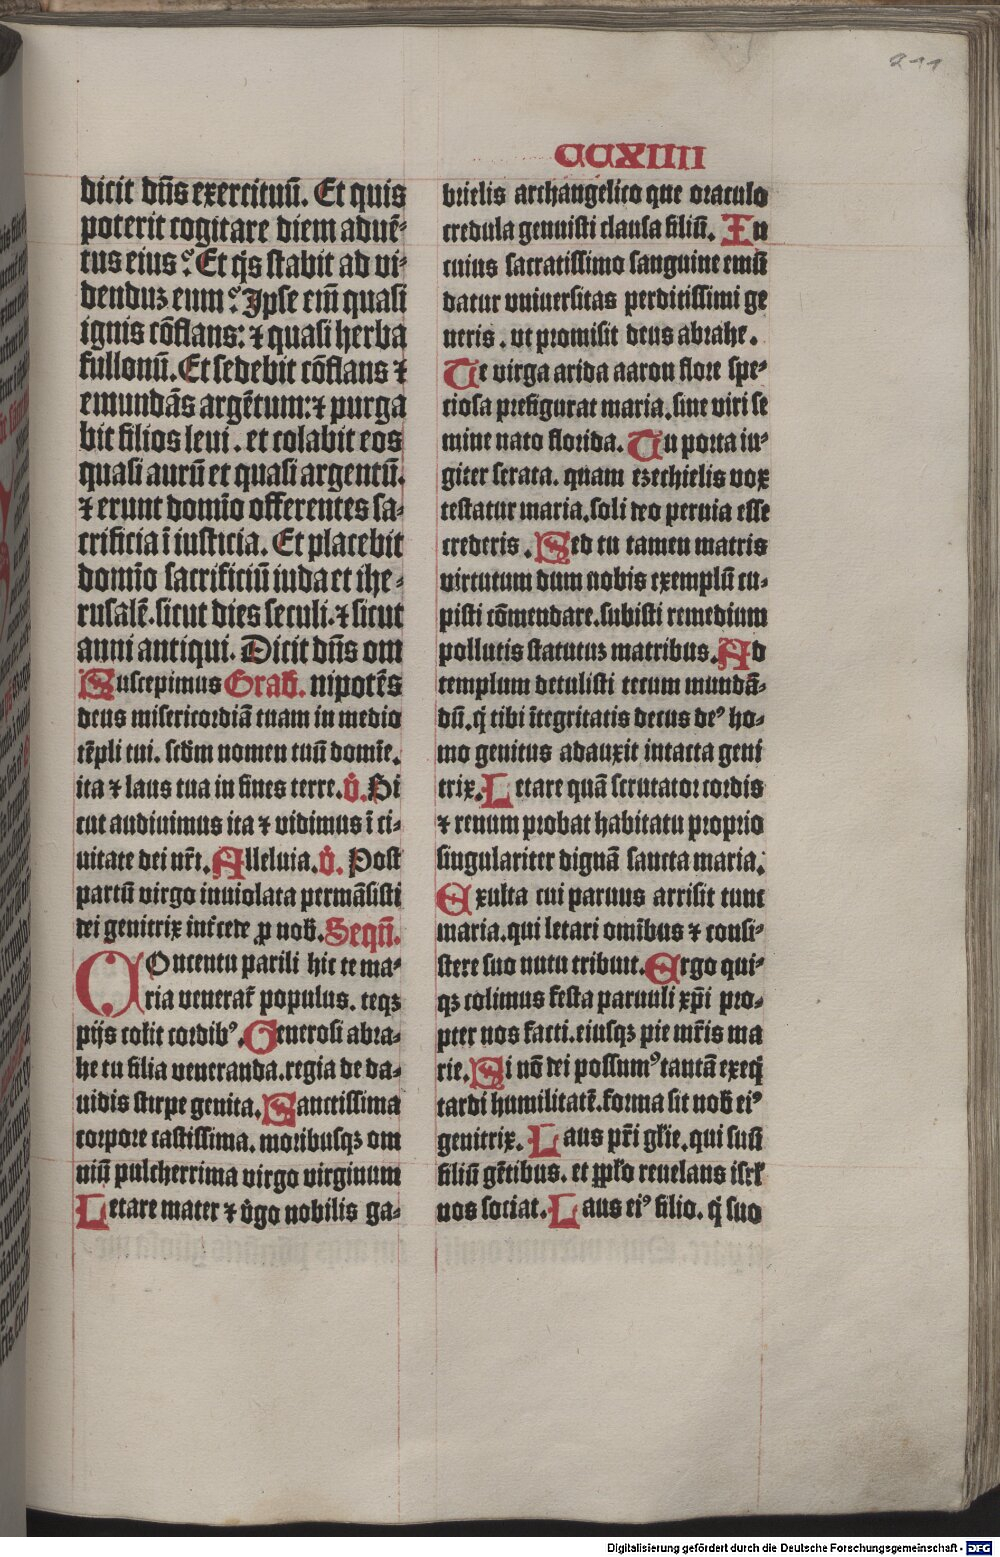 211
CCXIIII
dicit dn̄s exercituū. Et quis
poterit cogitare diem aduē-
tus eius? Et q̇s stabit ad vi-
denduz eum? Ipse em̄ quasi
ignis cōflans: ⁊ quasi herba
fullonū. Et sedebit cōflans ⁊
emundās argētum: ⁊ purga
bit filios leui. et colabit eos
quasi aurū et quasi argentū.
⁊ erunt domīo offerentes sa-
crificia ī iusticia. Et placebit
domīo sacrificiū iuda et ihe-
rusalē. sicut dies seculi. ⁊ sicut
anni antiqui. Dicit dn̄s om
Suscepimus Grad̄. nipotēs
deus misericordiā tuam in medio
tēpli tui. scd̄m nomen tuū domīe.
ita ⁊ laus tua in fines terre. v̇. Si
cut audiuimus ita ⁊ vidimus ī ci-
uitate dei nr̄i. Alleluia. v̇. Post
partū virgo inuiolata permāsisti
dei genitrix int̄cede ꝓ nob̄. Seqn̄.
COncentu parili hic te ma-
ria venerat̄ populus. teqꝫ
pijs colit cordibꝰ. Generosi abra-
he tu filia veneranda. regia de da-
uidis stirpe genita. Sanctissima
corpore castissima. moribusqꝫ om
niū pulcherrima virgo virginum
Letare mater ⁊ v̇go nobilis ga-
brielis archangelico que oraculo
credula genuisti clausa filiū. In
cuius sacratissimo sanguine emū
datur vniuersitas perditissimi ge
neris. vt promisit deus abrahe.
Te virga arida aaron flore spe-
ciosa prefigurat maria. sine viri se
mine nato florida. Tu porta iu-
giter serata. quam ezechielis vox
testatur maria. soli deo peruia esse
crederis. Sed tu tamen matris
virtutum dum nobis exemplū cu-
pisti cōmendare. subisti remedium
pollutis statutuz matribus. Ad
templum detulisti tecum mundā-
dū. q̇ tibi ītegritatis decus deꝰ ho-
mo genitus adauxit intacta geni
trix. Letare quā scrutator cordis
⁊ renum probat habitatu proprio
singulariter dignā sancta maria.
Exulta cui paruus arrisit tunc
maria. qui letari omībus ⁊ consi-
stere suo nutu tribuit. Ergo qui-
qꝫ colimus festa paruuli xp̄i pro-
pter nos facti. eiusqꝫ pie mr̄is ma
rie. Si nō dei possumꝰ tantā exeq̇
tardi humilitatē. forma sit nob̄ eiꝰ
genitrix. Laus pr̄i gl̄ie. qui suū
filiū gētibus. et ppl̄o reuelans isrl̄
nos sociat. Laus eiꝰ filio. q̇ suo
Digitalisierung gefördert durch die Deutsche Forschungsgemeinschaft - DFG